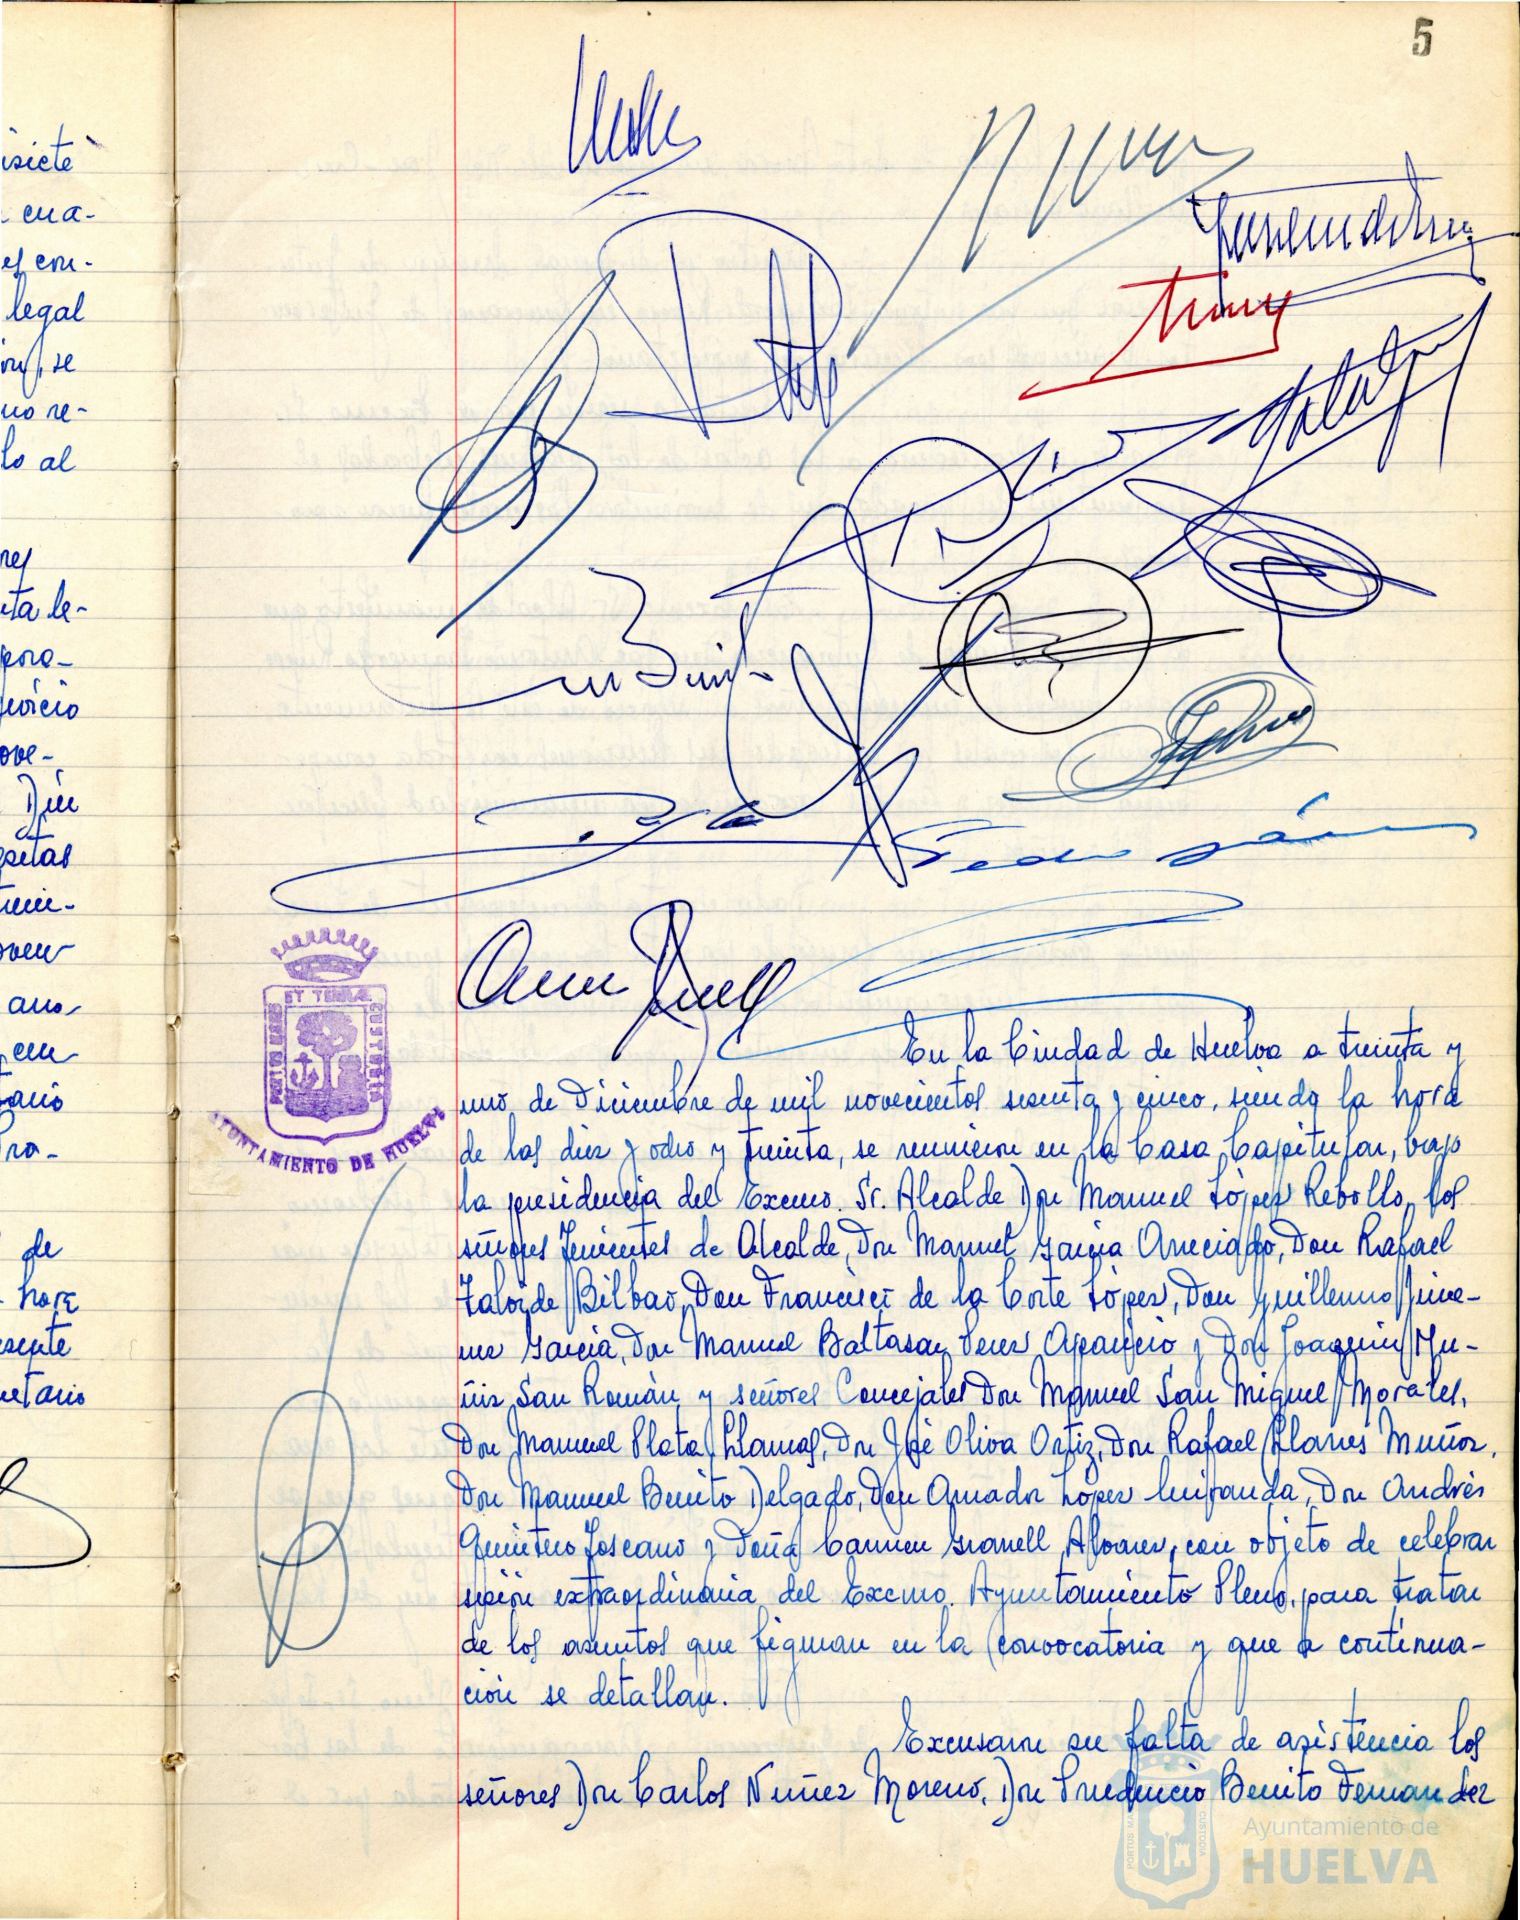 5
isiete
cua-
es con-
legal
se
uno re-
lo al
nta le-
pora-
ove-
Diu
em
tario
de
hora
etario
Pedro
PORTUS MARIS ET TERRAE CUSTODIA
AYUNTAMIENTO DE HUELVA
En la Ciudad de Huelva a treinta y
uno de Diciembre de mil novecientos sesenta y cinco, siendo la hora
de las diez y ocho y treinta, se reunieron en la Casa Capitular, bajo
la presidencia del Excmo. Sr. Alcalde Don Manuel López Rebollo, los
señores Tenientes de Alcalde, Don Manuel Garcia Areciado, Don Rafael
Zalvide Bilbao, Don Francisco de la Corte López, Don Guillermo Jime-
nez Garcia, Don Manuel Baltasar Perez Aparicio y Don Joaquin Mu-
ñiz San Román y señores Concejales Don Manuel San Miguel Morales,
Don Manuel Plata Llamas, Don José Oliva Ortiz, Don Rafael Llanes Muñoz,
Don Manuel Benito Delgado, Don Amador López Miranda, Don Andrés
Quintero Toscano y Doña Carmen Granell Alvarez, con objeto de celebrar
sesión extraordinaria del Excmo. Ayuntamiento Pleno, para tratar
de los asuntos que figuran en la convocatoria y que a continua-
ción se detallan.
Excusaron su falta de asistencia los
señores Don Carlos Nuñez Moreno, Don Prudencio Benito Fernandez
Ayuntamiento de
HUELVA